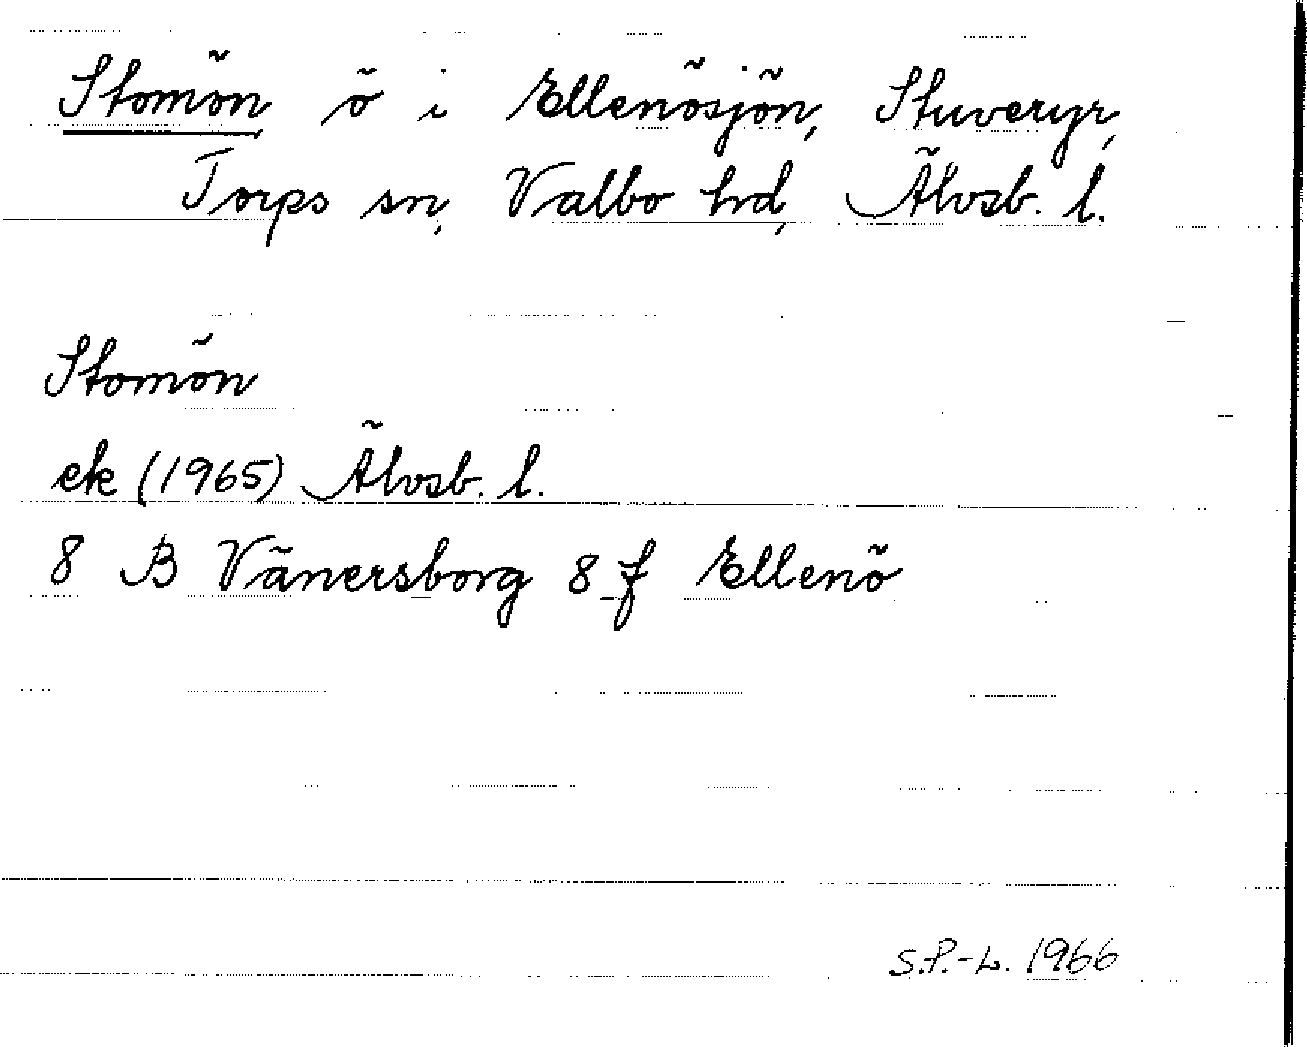 Stomön ö i Ellenösjön, Stuveryr,
Torps sn, Valbo hd, Älvsb. l.
Stomön
ek (1965) Älvsb. l.
8 B Vänersborg 8 f Ellenö
S.P.-L. 1966